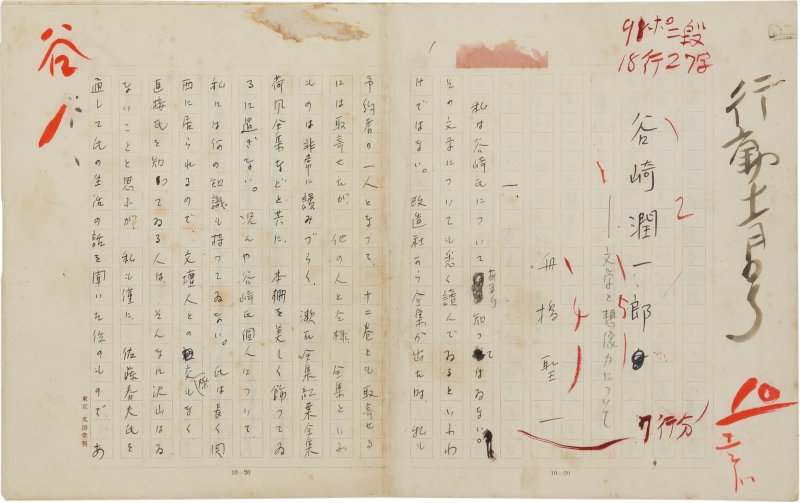 9ポ二段
18行27字
行動十一月号
谷崎潤一郎
2
―文学と想像力について
5
舟橋聖一
4
7行分
一
私は谷崎氏についてあまり知ってはゐない。
その文学についても悉く讀んでゐるといふわ
けではない。改造社から全集が出た時、私も
予約者の一人となって、十二巻とも取寄せる
には取寄せたが 他の人と仝様 全集といふ
ものは非常に讀みづらく、漱石全集紅葉全集
荷風全集などと共に、本棚を美しく飾ってゐ
るに過ぎない。况んや谷崎氏個人について
私には何の知識も持ってゐない。氏は長く関
西に居られるので、文壇人との交際もなく
直接氏を知ってゐる人は、そんなに沢山はゐ
ないことと思ふが、私も僅に、佐藤春夫氏を
通して氏の生活の話を聞いた位のもので、あ
谷
10
10—20
10—20
東京 文房堂製